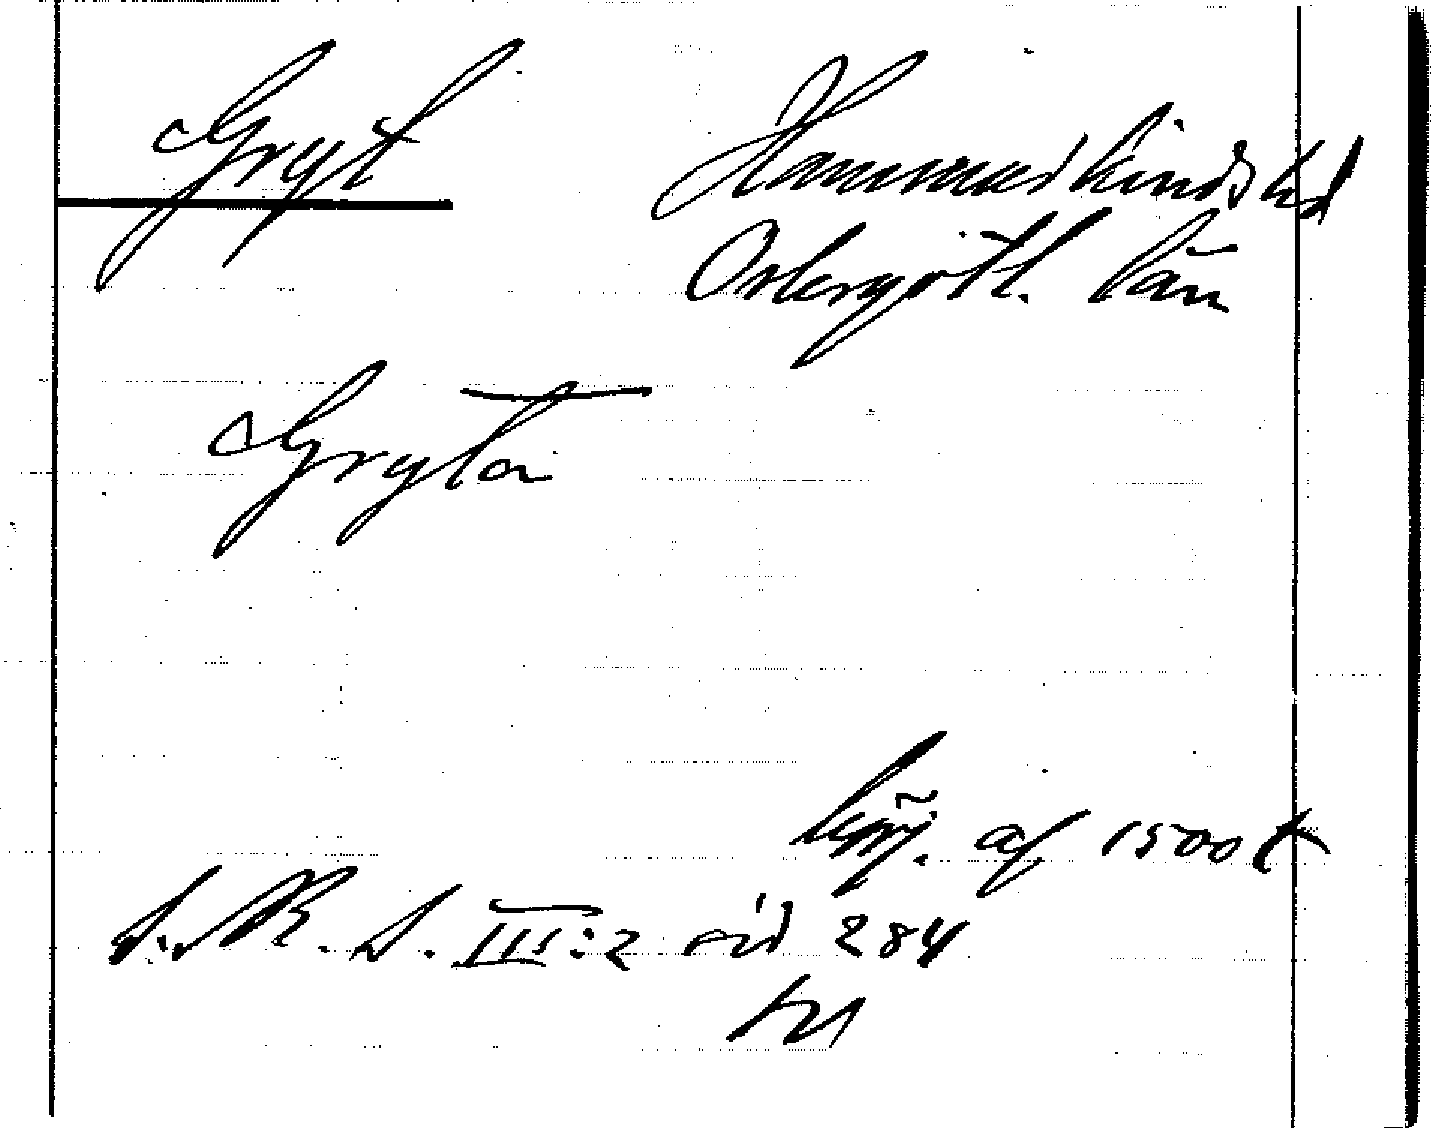 Gryt Hammarkinds hd
Östergötl. län
Gryta
början af 1500 t
S. R. S. III:2 sid 284